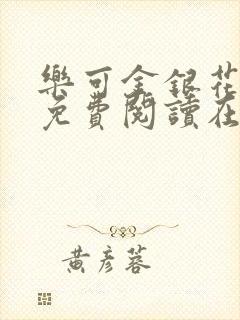 樂可金銀花
免費閱讀在
黃彥蓉